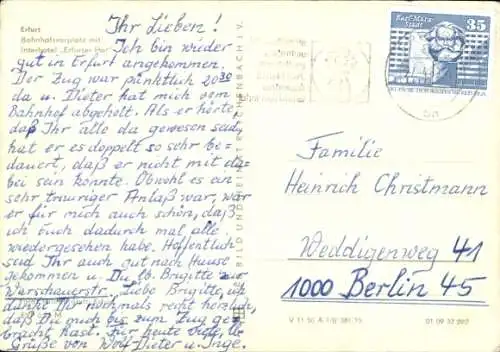 Erfurt
Bahnhofsvorplatz mit
Interhotel „Erfurter Hof"
Ihr Lieben!
Ich bin wieder
gut in Erfurt angekommen.
Der Zug war pünktlich 20³⁰
da u. Dieter hat mich vom
Bahnhof abgeholt. Als er hörte,
daß Ihr alle da gewesen seid,
hat er es doppelt so sehr be-
dauert, daß er nicht mit da-
bei sein konnte. Obwohl es ein
sehr trauriger Anlaß war, war
er für mich auch schön, daß
ich Euch dadurch mal alle
wiedergesehen habe. Hoffentlich
seid Ihr auch gut nach Hause
gekommen u. Du, lb. Brigitte zur
Warschauerstr. Liebe Brigitte, ich
danke Dir nochmals recht herzlich,
daß Du mich bis zum Zug ge-
bracht hast. Für heute viele lb.
Grüße von Wolf-Dieter u. Inge.
BILD UND HEIMAT REICHENBACH I. V.
Karl-Marx-
Stadt
35
Familie
Heinrich Christmann
Weddigenweg 41
1000 Berlin 45
V 11 50 A 1/B
01 09 32